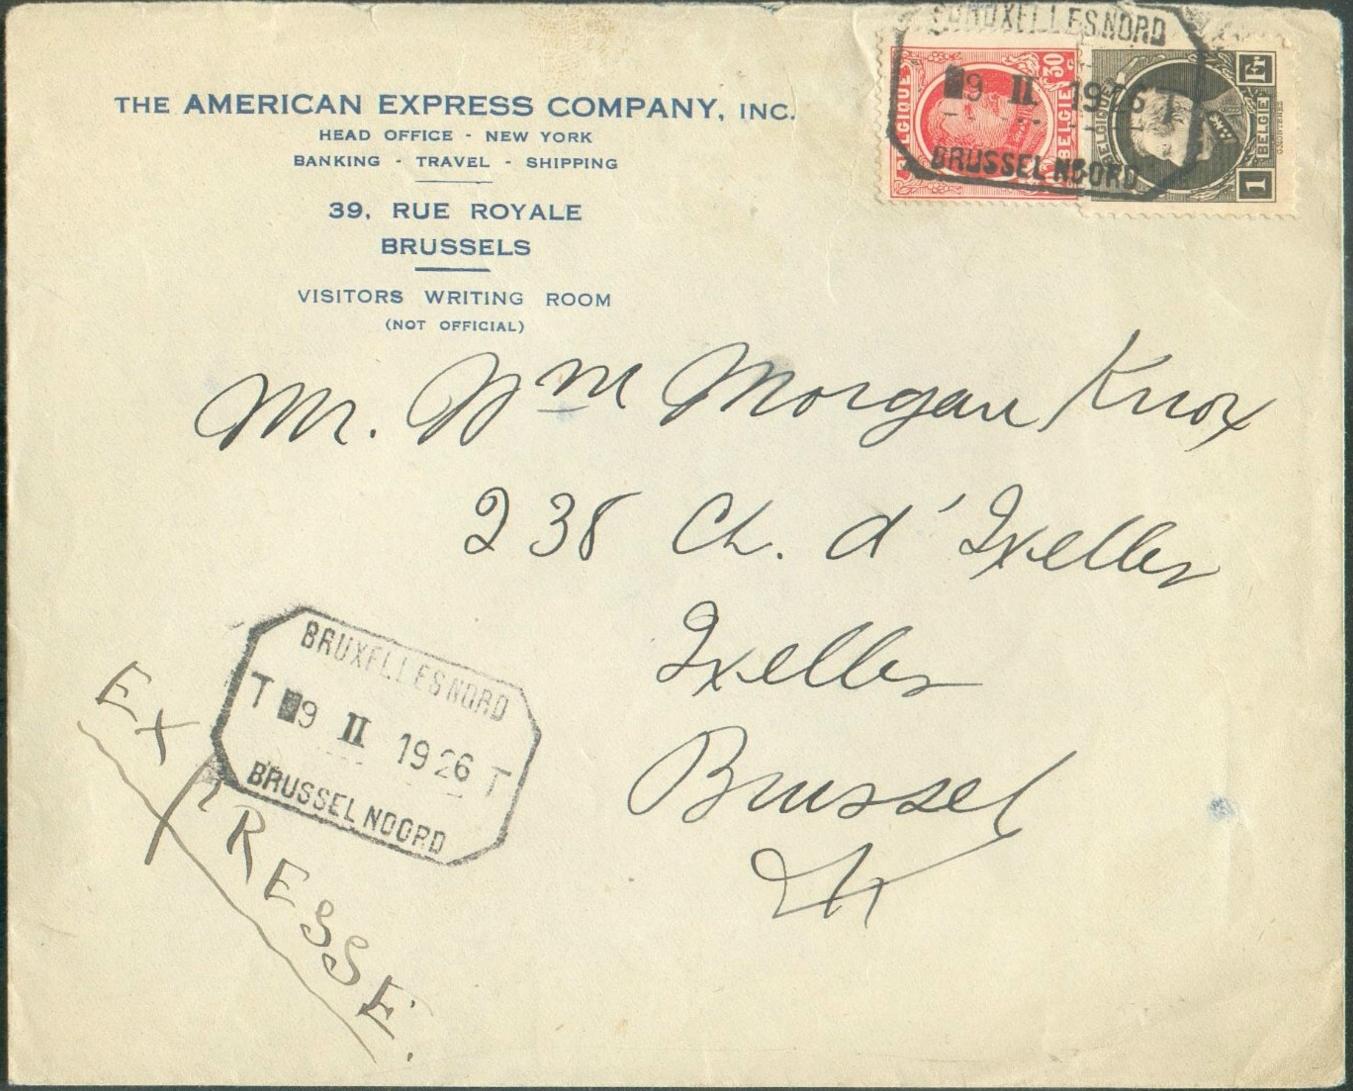 THE AMERICAN EXPRESS COMPANY, INC.
HEAD OFFICE - NEW YORK
BANKING - TRAVEL - SHIPPING
39, RUE ROYALE
BRUSSELS
VISITORS WRITING ROOM
(NOT OFFICIAL)
BRUXELLES NORD
9 II 1926 T
BRUSSEL NOORD
BELGIQUE
30 c
BELGIE
BELGIQUE
1 Fr
BELGIE
Mr. Wm Morgan Knox
238 Ch. d'Ixelles
Ixelles
Brussel
BRUXELLES NORD
T 9 II 1926 T
BRUSSEL NOORD
EXPRESSE.